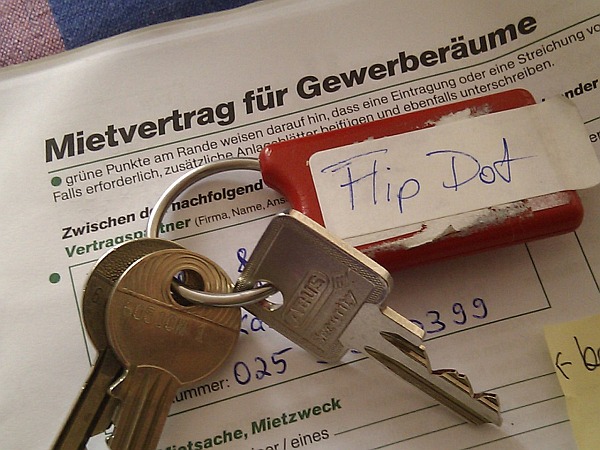 Mietvertrag für Gewerberäume
grüne Punkte am Rande weisen darauf hin, dass eine Eintragung oder eine Streichung
Falls erforderlich, zusätzliche Anlageblätter beifügen und ebenfalls unterschreiben.
Zwischen der nachfolgend
Vertragspartner (Firma, Name,
Flip Dot
ABUS
025 0399
Mietsache, Mietzweck
eines